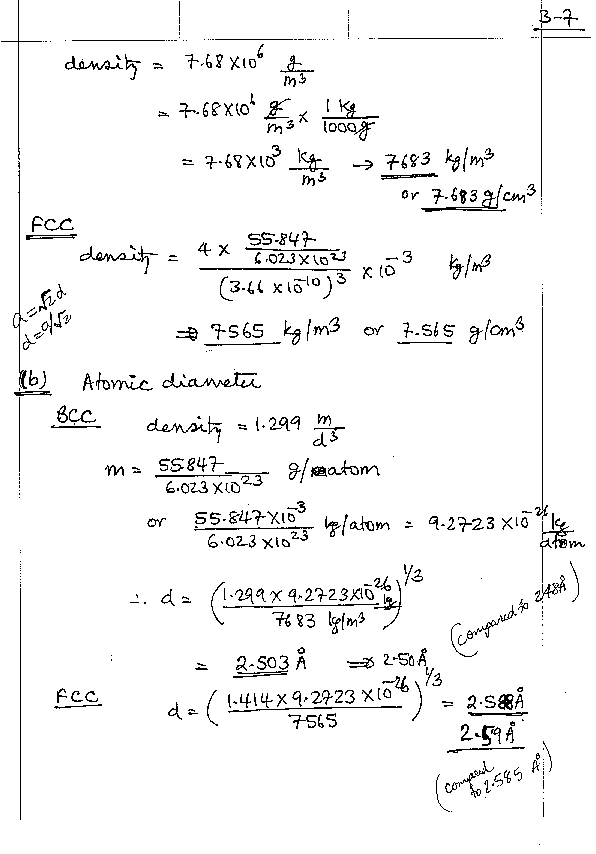 3-7
density = 7.68 X10^6 g/m^3
= 7.68 X10^6 g/m^3 X 1 Kg/1000g
= 7.68 X10^3 kg/m^3 → 7683 kg/m^3
or 7.683 g/cm^3
FCC
density = (4 X 55.847/6.023X10^23)/(3.66 X 10^-10)^3 X 10^-3 kg/m^3
a=√2d
d=a/√2
⇒ 7565 kg/m^3 or 7.565 g/cm^3
(b) Atomic diameter
BCC density = 1.299 m/d^3
m = 55.847/6.023 X10^23 g/atom
or 55.847X10^-3/6.023 X10^23 kg/atom = 9.2723 X10^-26 kg/atom
∴ d = (1.299 X 9.2723X10^-26 kg/7683 kg/m^3)^1/3
(compared to 2.48Å)
= 2.503 Å ⇒ 2.50Å
FCC d = (1.414 X 9.2723 X10^-26/7565)^1/3 = 2.588Å
2.59Å
(compared
to 2.585 Å)